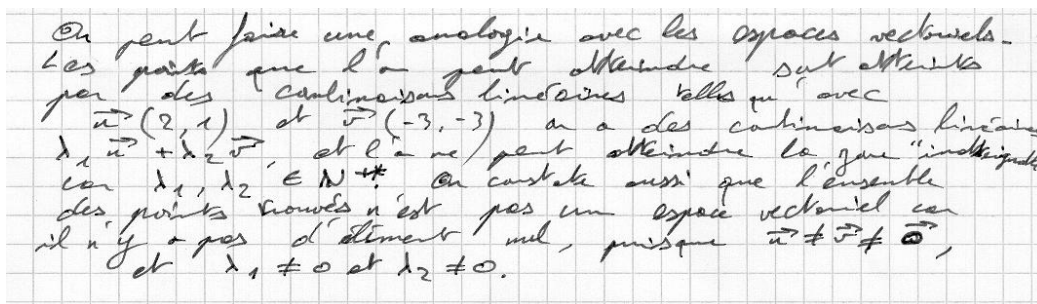 On peut faire une analogie avec les espaces vectoriels.
Les points que l'on peut atteindre sont atteints
par des combinaisons linéaires telles qu'avec
u⃗ (2, 1) et v⃗ (-3, -3) on a des combinaisons linéaires
λ₁ u⃗ + λ₂ v⃗, et l'on ne peut atteindre la zone "inatteignable"
car λ₁, λ₂ ∈ N⁺*. On constate aussi que l'ensemble
des points trouvés n'est pas un espace vectoriel car
il n'y a pas d'élément nul, puisque u⃗ ≠ v⃗ ≠ 0⃗,
et λ₁ ≠ 0 et λ₂ ≠ 0.